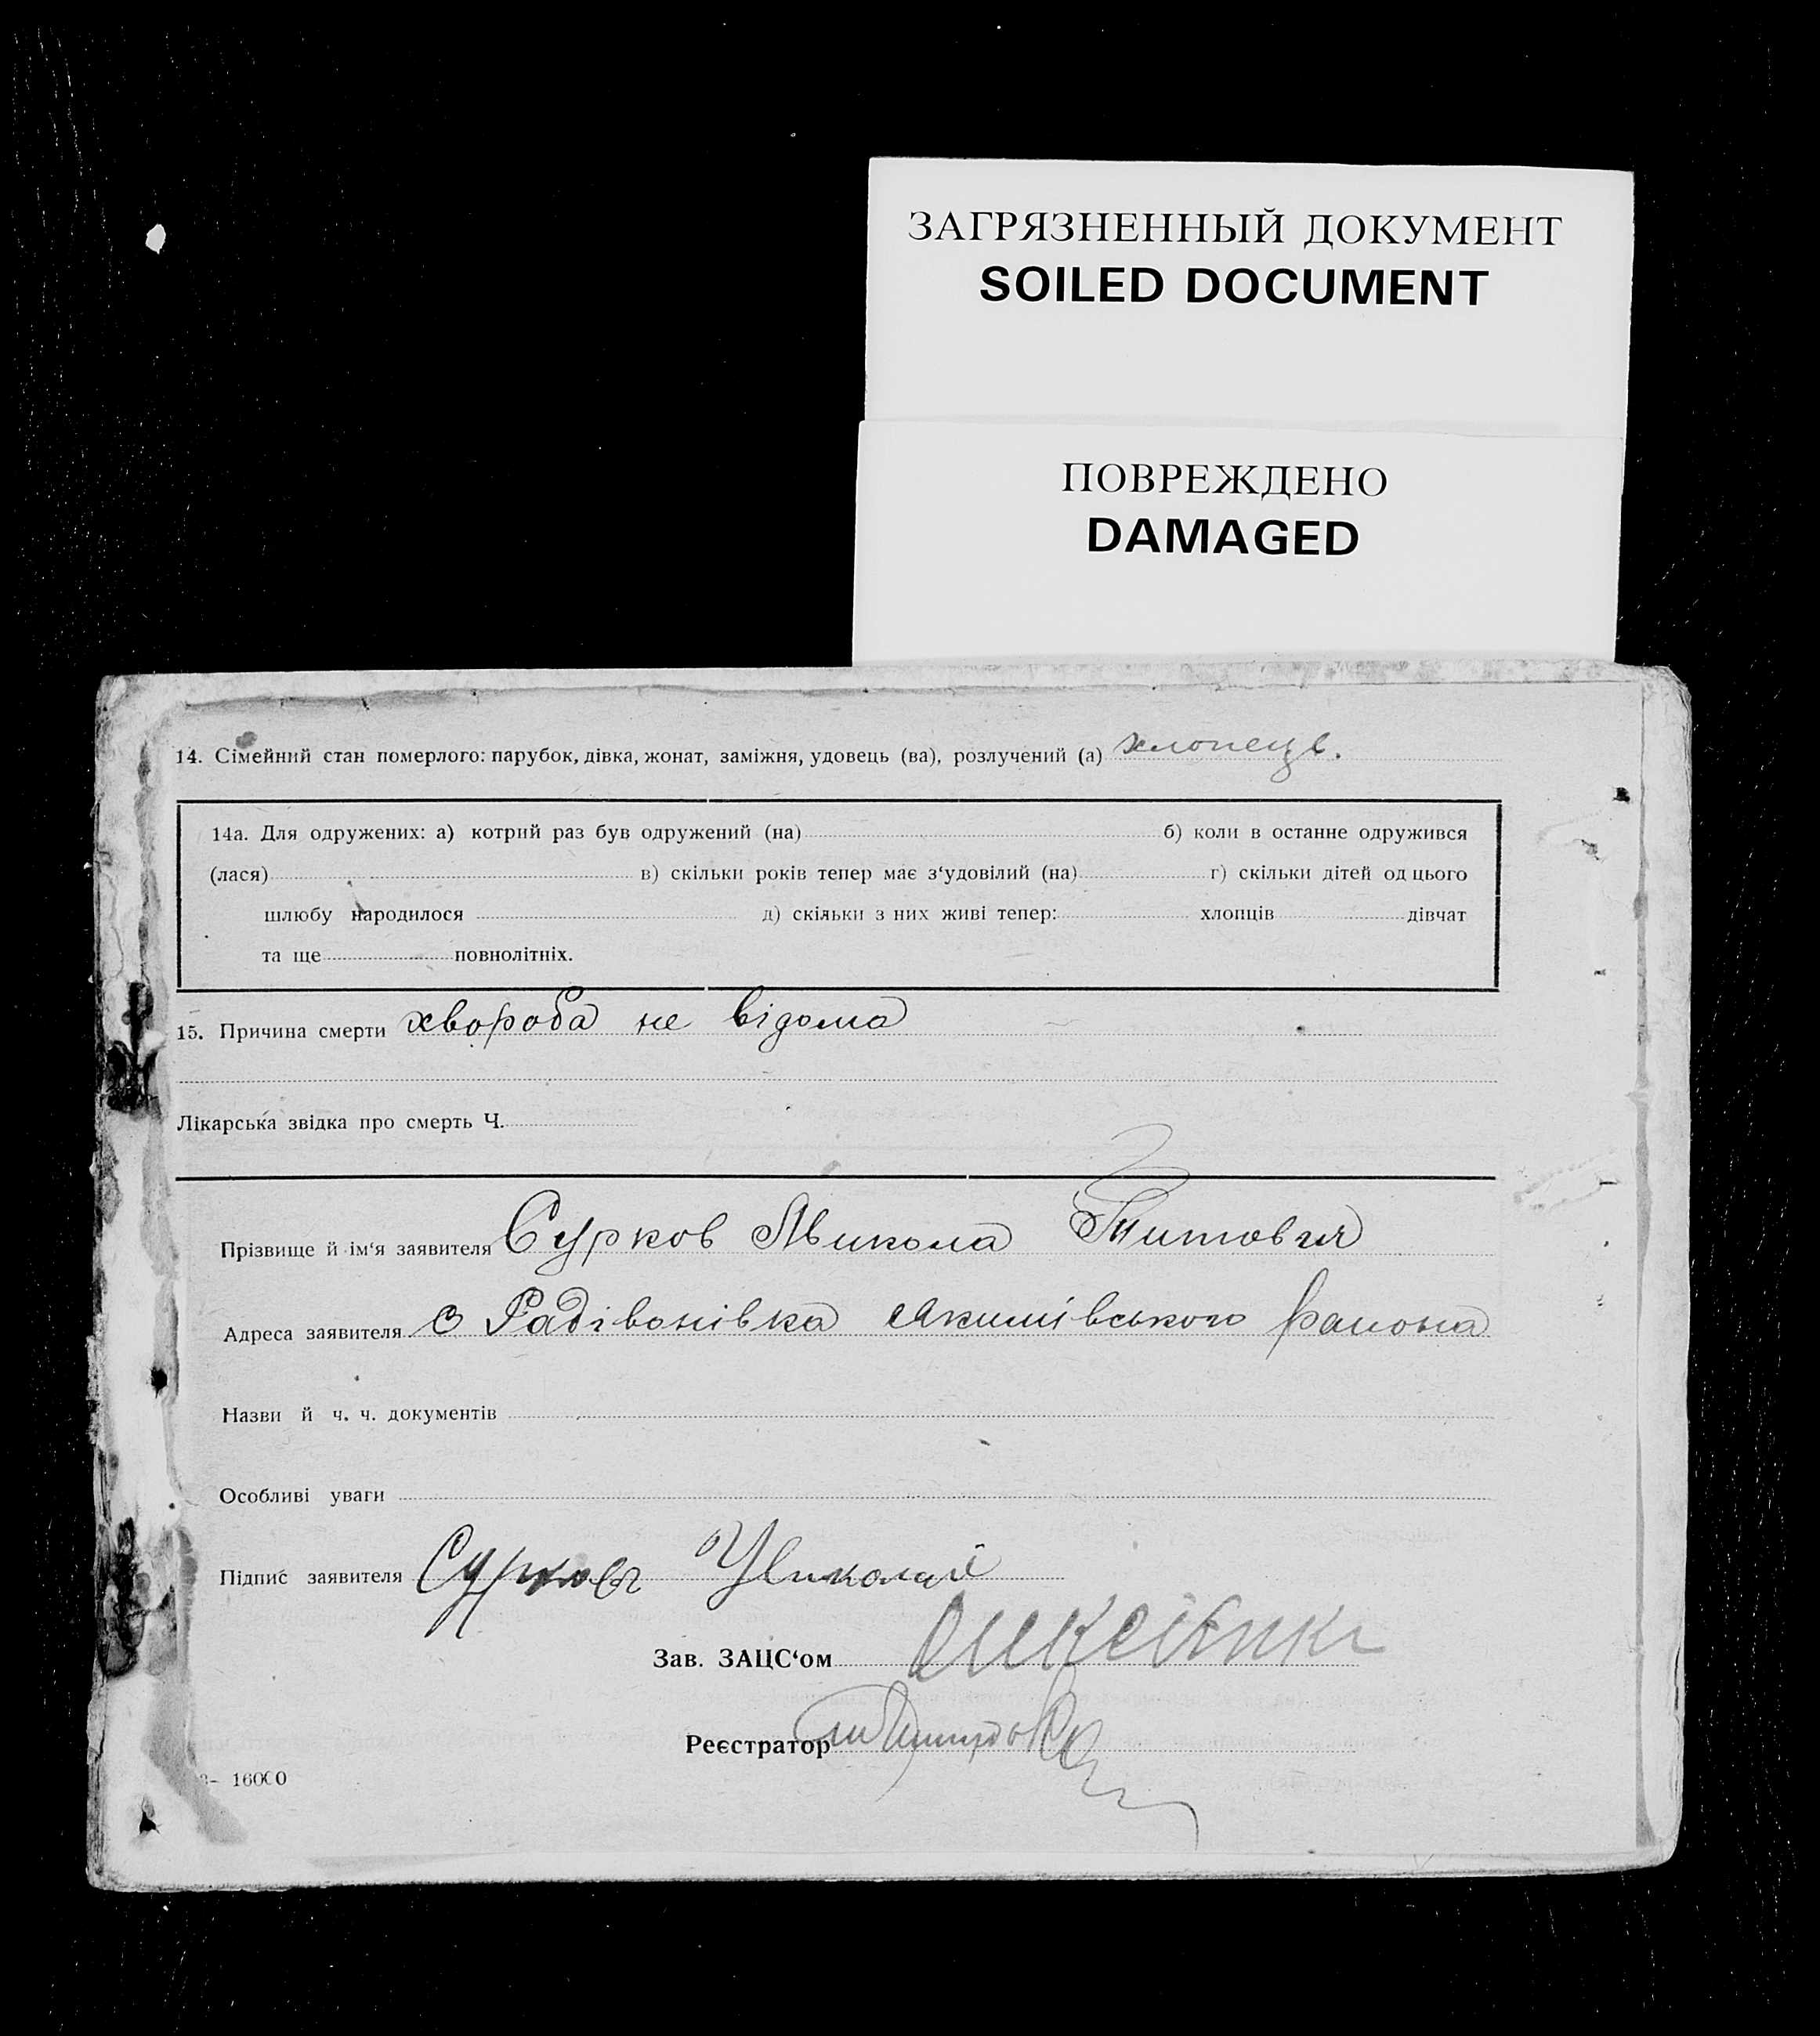 ЗАГРЯЗНЕННЫЙ ДОКУМЕНТ
SOILED DOCUMENT
ПОВРЕЖДЕНО
DAMAGED
14. Сімейний стан померлого: парубок, дівка, жонат, заміжня, удовець (ва), розлучений (а) хлопець.
14а. Для одружених: а) котрий раз був одружений (на) б) коли в останне одружився
(лася) в) скільки років тепер має з‘удовілий (на) г) скільки дітей од цього
шлюбу народилося д) скільки з них живі тепер: хлопців дівчат
та ще повнолітніх.
15. Причина смерти хвороба не відома
Лікарська звідка про смерть Ч.
Прізвище й ім‘я заявителя Сурков Микола Титович
Адреса заявителя с Радівонівка Якимівського району
Назви й ч. ч. документів
Особливі уваги
Підпис заявителя Сурков Николай
Зав. ЗАЦС‘ом
Реєстратор
16000